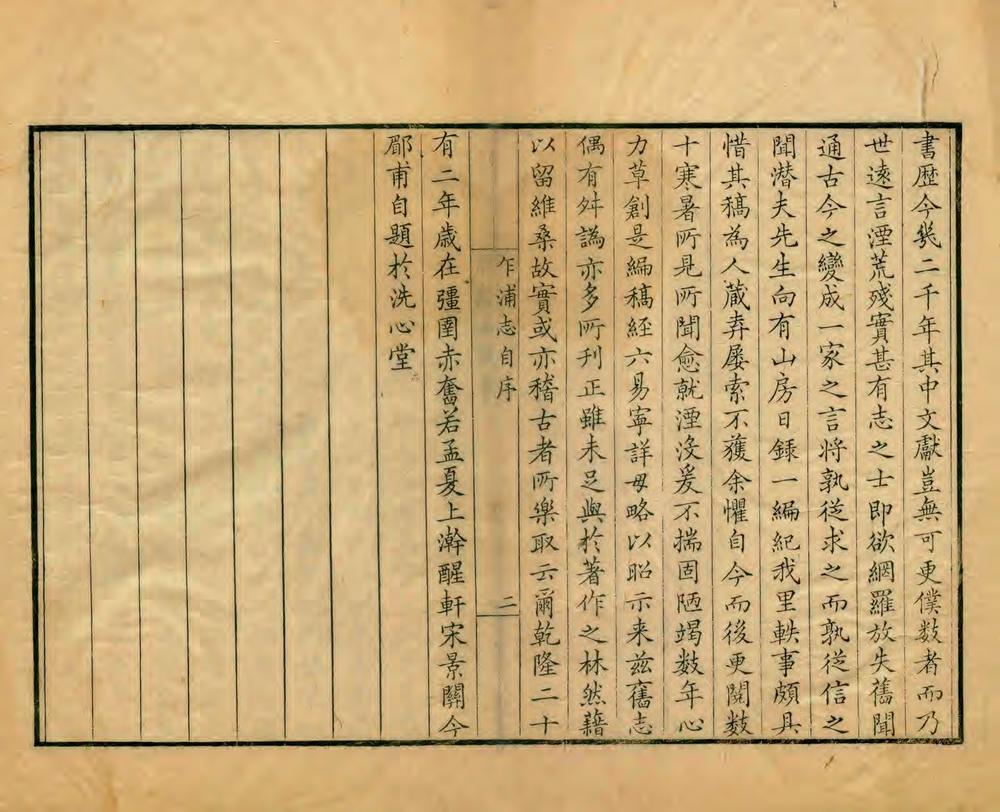 書歷今幾二千年其中文獻豈無可更僕数者而乃
世遠言湮荒殘實甚有志之士即欲網羅放失舊聞
通古今之變成一家之言将孰從求之而孰從信之
聞潜夫先生向有山房日録一編紀我里軼事頗具
惜其稿為人蔵弆屡索不獲余懼自今而後更閱数
十寒暑所見所聞愈就湮没爰不揣固陋竭数年心
力草創是編稿經六易寧詳毋略以昭示来兹舊志
偶有舛譌亦多所刊正雖未足與於著作之林然藉
以留維桑故實或亦稽古者所樂取云爾乾隆二十
乍浦志自序
二
有二年歲在彊圉赤奮若孟夏上澣醒軒宋景關今
郿甫自題於洗心堂